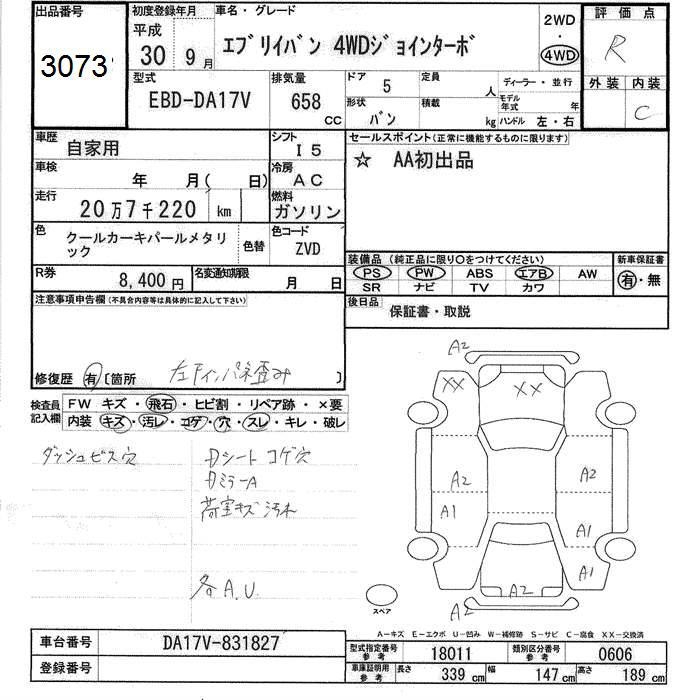 出品番号
3073
初度登録年月
平成
30 9月
車名・グレード
エブリイバン 4WDジョインターボ
2WD
・
4WD
評価点
R
外装 内装
C
型式
EBD-DA17V
排気量
658 cc
ドア
5
定員
人
形状
バン
積載
kg
ディーラー・並行
モデル年式 年
ハンドル 左・右
車歴
自家用
シフト
I5
車検
年 月( 日)
冷房
AC
走行
20万7千220 km
燃料
ガソリン
色
クールカーキパールメタリック
色替
色コード
ZVD
R券
8,400円
名変通知期限
月 日
セールスポイント(正常に機能するものに限ります)
☆ AA初出品
装備品(純正品に限り○をつけてください)
PS PW ABS エアB AW
SR ナビ TV カワ
新車保証書
有・無
後日品
保証書・取説
注意事項申告欄(不具合内容等は具体的に記入して下さい)
修復歴 有〔箇所 〕
検査員記入欄
FW キズ・飛石・ヒビ割・リペア跡・×要
内装 キズ・汚レ・コゲ・穴・スレ・キレ・破レ
ダッシュビス穴
Dシート コゲ穴
DミラーA
荷室キズ 汚れ
各A.U.
A2
XX
XX
A2
A2
A1
A1
A1
A2
A2
スペア
A-キズ E-エクボ U-凹み W-補修跡 S-サビ C-腐食 XX-交換済
車台番号
DA17V-831827
登録番号
型式指定番号
参考
18011
類別区分番号
参考
0606
車庫証明用
参考
長さ 339 cm 幅 147 cm 高さ 189 cm